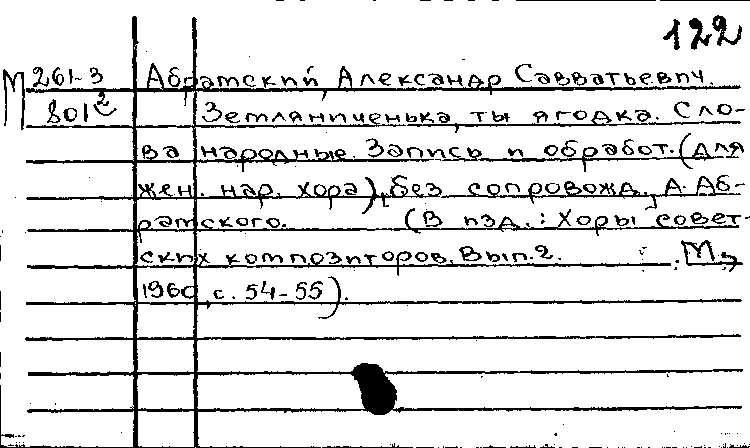 122
М 261-3 Абратский, Александр Савватьевич.
801² Земляниченька, ты ягодка. Сло-
ва народные. Запись и обработ. (для
жен. нар. хора), [без сопровожд.] А. Аб-
ратского. (В изд.: Хоры совет-
ских композиторов. Вып. 2. М.,
1960, с. 54-55).